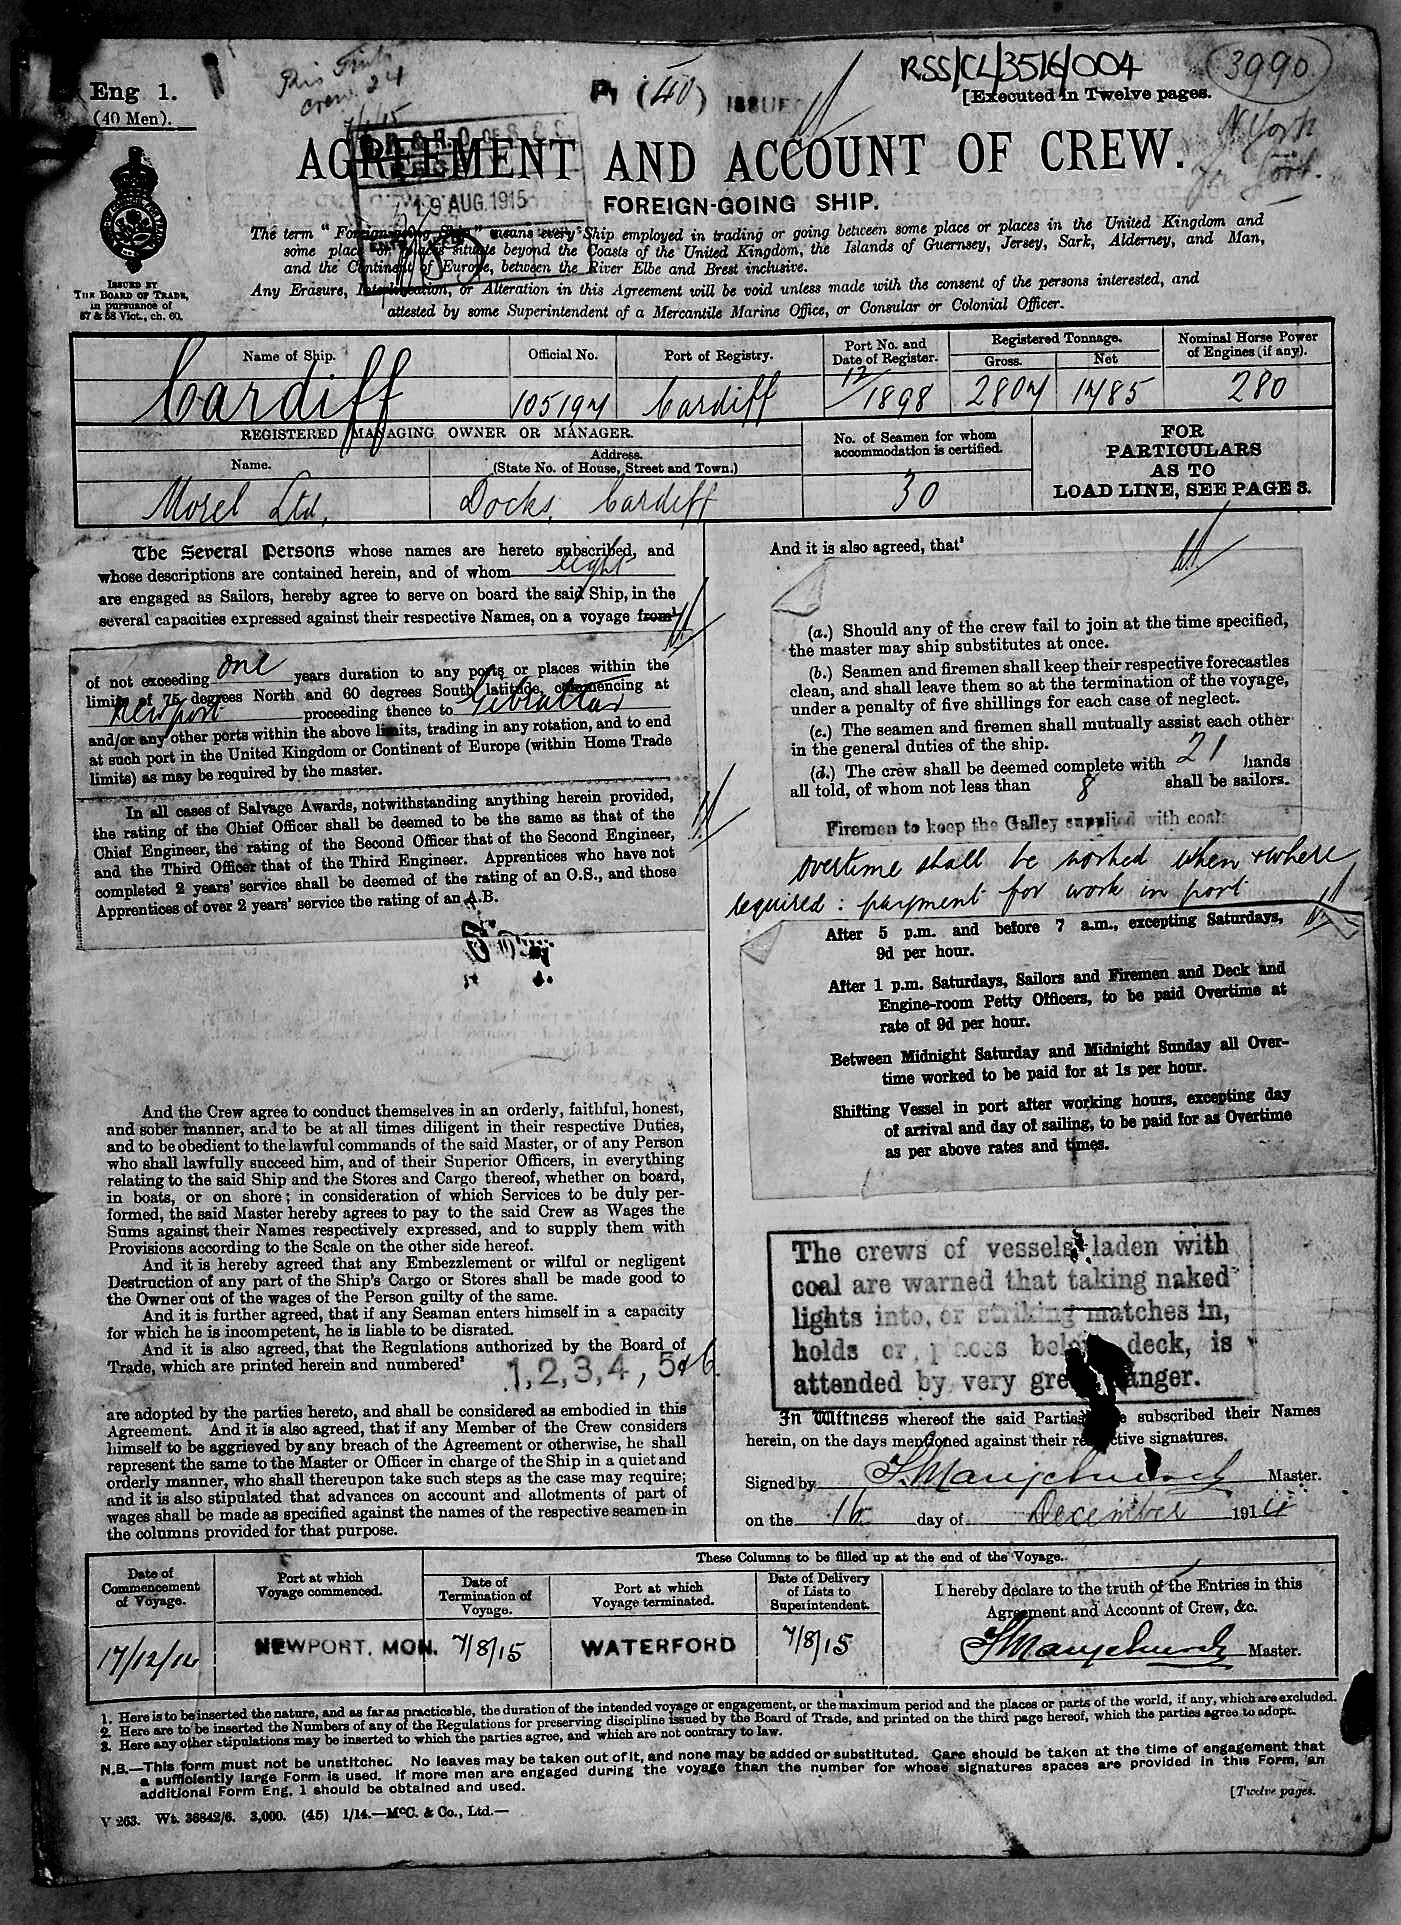 Eng 1.
(40 Men).
This
crew 24
7/1/15
P1 (40) ISSUED
RSS/CL/3516/004
3990
[Executed in Twelve pages.
N. York
AGREEMENT AND ACCOUNT OF CREW.
19 AUG. 1915
FOREIGN-GOING SHIP.
The term "Foreign-going Ship" means every Ship employed in trading or going between some place or places in the United Kingdom and
some place or places situate beyond the Coasts of the United Kingdom, the Islands of Guernsey, Jersey, Sark, Alderney, and Man,
and the Continent of Europe, between the River Elbe and Brest inclusive.
Any Erasure, Interlineation, or Alteration in this Agreement will be void unless made with the consent of the persons interested, and
attested by some Superintendent of a Mercantile Marine Office, or Consular or Colonial Officer.
ISSUED BY
THE BOARD OF TRADE,
in pursuance of
57 & 58 Vict., ch. 60.
Name of Ship.
Official No.
Port of Registry.
Port No. and
Date of Register.
Registered Tonnage.
Gross.
Net
Nominal Horse Power
of Engines (if any).
Cardiff
105197
Cardiff
12/1898
2807
1785
280
REGISTERED MANAGING OWNER OR MANAGER.
Name.
Address.
(State No. of House, Street and Town.)
No. of Seamen for whom
accommodation is certified.
FOR
PARTICULARS
AS TO
LOAD LINE, SEE PAGE 3.
Morel Ltd,
Docks, Cardiff
30
The Several Persons whose names are hereto subscribed, and
whose descriptions are contained herein, and of whom eight
are engaged as Sailors, hereby agree to serve on board the said Ship, in the
several capacities expressed against their respective Names, on a voyage from¹
of not exceeding one years duration to any ports or places within the
limits of 75 degrees North and 60 degrees South latitude, commencing at
Newport proceeding thence to Gibraltar
and/or any other ports within the above limits, trading in any rotation, and to end
at such port in the United Kingdom or Continent of Europe (within Home Trade
limits) as may be required by the master.
In all cases of Salvage Awards, notwithstanding anything herein provided,
the rating of the Chief Officer shall be deemed to be the same as that of the
Chief Engineer, the rating of the Second Officer that of the Second Engineer,
and the Third Officer that of the Third Engineer. Apprentices who have not
completed 2 years' service shall be deemed of the rating of an O.S., and those
Apprentices of over 2 years' service the rating of an A.B.
And the Crew agree to conduct themselves in an orderly, faithful, honest,
and sober manner, and to be at all times diligent in their respective Duties,
and to be obedient to the lawful commands of the said Master, or of any Person
who shall lawfully succeed him, and of their Superior Officers, in everything
relating to the said Ship and the Stores and Cargo thereof, whether on board,
in boats, or on shore; in consideration of which Services to be duly per-
formed, the said Master hereby agrees to pay to the said Crew as Wages the
Sums against their Names respectively expressed, and to supply them with
Provisions according to the Scale on the other side hereof.
And it is hereby agreed that any Embezzlement or wilful or negligent
Destruction of any part of the Ship's Cargo or Stores shall be made good to
the Owner out of the wages of the Person guilty of the same.
And it is further agreed, that if any Seaman enters himself in a capacity
for which he is incompetent, he is liable to be disrated.
And it is also agreed, that the Regulations authorized by the Board of
Trade, which are printed herein and numbered² 1, 2, 3, 4, 5 & 6
are adopted by the parties hereto, and shall be considered as embodied in this
Agreement. And it is also agreed, that if any Member of the Crew considers
himself to be aggrieved by any breach of the Agreement or otherwise, he shall
represent the same to the Master or Officer in charge of the Ship in a quiet and
orderly manner, who shall thereupon take such steps as the case may require;
and it is also stipulated that advances on account and allotments of part of
wages shall be made as specified against the names of the respective seamen in
the columns provided for that purpose.
And it is also agreed, that³
(a.) Should any of the crew fail to join at the time specified,
the master may ship substitutes at once.
(b.) Seamen and firemen shall keep their respective forecastles
clean, and shall leave them so at the termination of the voyage,
under a penalty of five shillings for each case of neglect.
(c.) The seamen and firemen shall mutually assist each other
in the general duties of the ship.
(d.) The crew shall be deemed complete with 21 hands
all told, of whom not less than 8 shall be sailors.
Firemen to keep the Galley supplied with coals
overtime shall be worked when & where
required: payment for work in port
After 5 p.m. and before 7 a.m., excepting Saturdays,
9d per hour.
After 1 p.m. Saturdays, Sailors and Firemen and Deck and
Engine-room Petty Officers, to be paid Overtime at
rate of 9d per hour.
Between Midnight Saturday and Midnight Sunday all Over-
time worked to be paid for at 1s per hour.
Shifting Vessel in port after working hours, excepting day
of arrival and day of sailing, to be paid for as Overtime
as per above rates and times.
The crews of vessels laden with
coal are warned that taking naked
lights into, or striking matches in,
holds or places below deck, is
attended by very great danger.
In Witness whereof the said Parties have subscribed their Names
herein, on the days mentioned against their respective signatures.
Signed by Master.
on the 16 day of December 1914
Date of
Commencement
of Voyage.
Port at which
Voyage commenced.
These Columns to be filled up at the end of the Voyage.
Date of
Termination of
Voyage.
Port at which
Voyage terminated.
Date of Delivery
of Lists to
Superintendent.
I hereby declare to the truth of the Entries in this
Agreement and Account of Crew, &c.
17/12/14
NEWPORT, MON.
7/8/15
WATERFORD
7/8/15
Master.
1. Here is to be inserted the nature, and as far as practicable, the duration of the intended voyage or engagement, or the maximum period and the places or parts of the world, if any, which are excluded.
2. Here are to be inserted the Numbers of any of the Regulations for preserving discipline issued by the Board of Trade, and printed on the third page hereof, which the parties agree to adopt.
3. Here any other stipulations may be inserted to which the parties agree, and which are not contrary to law.
N.B.—This form must not be unstitched. No leaves may be taken out of it, and none may be added or substituted. Care should be taken at the time of engagement that
a sufficiently large Form is used. If more men are engaged during the voyage than the number for whose signatures spaces are provided in this Form, an
additional Form Eng. 1 should be obtained and used.
[Twelve pages.
V 263. Wt. 36842/6. 3,000. (45) 1/14.—McC. & Co., Ltd.—